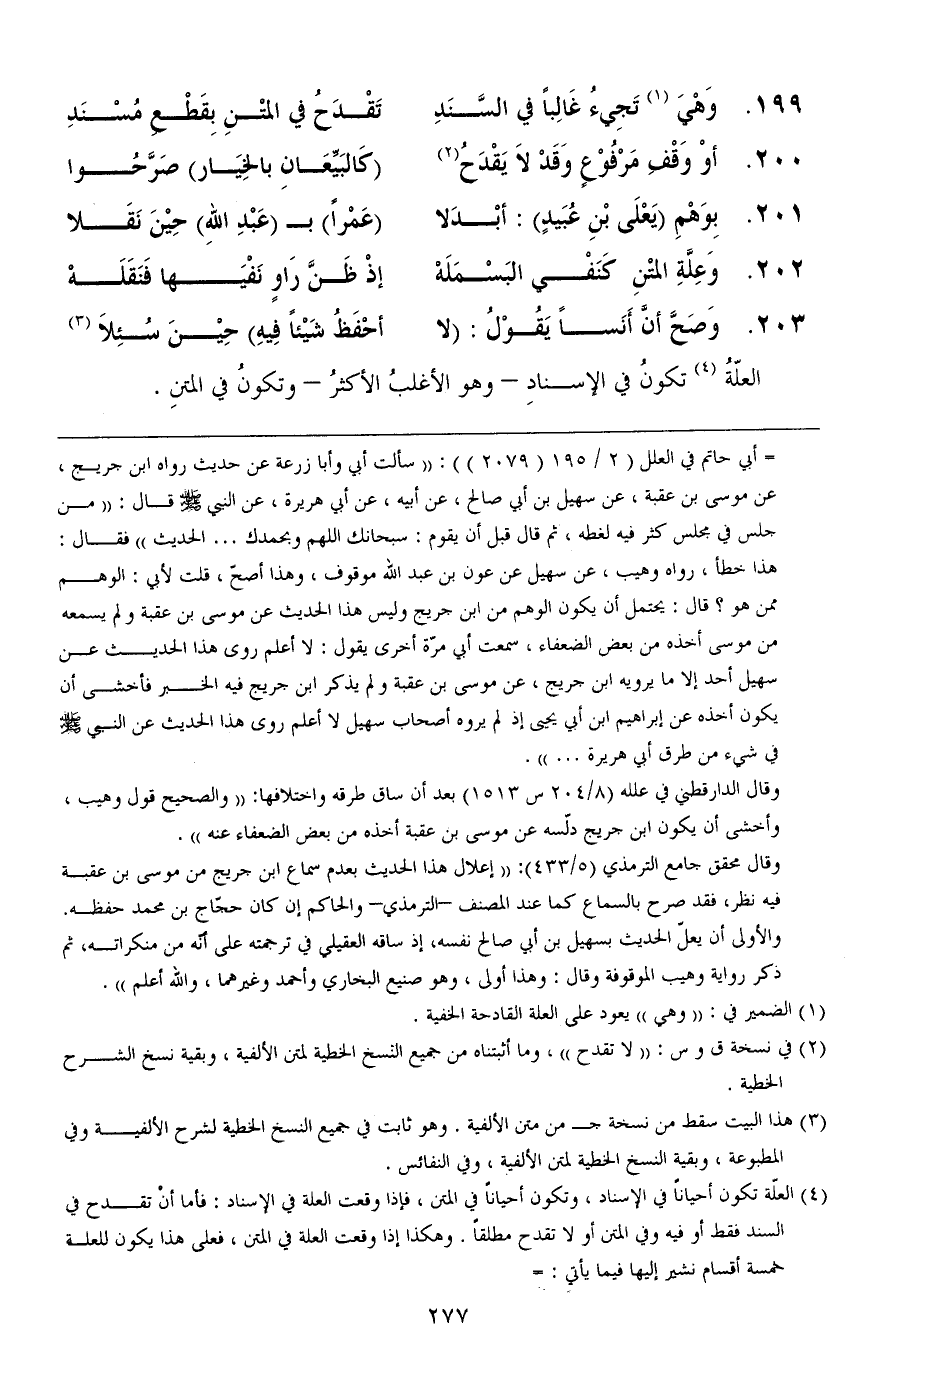 ١٩٩. وَهْيَ (١) تَجِيءُ غَالِباً في السَّنَدِ تَقْدَحُ في المتْنِ بِقَطْعِ مُسْنَدِ
٢٠٠. أوْ وَقْفِ مَرْفُوْعٍ وَقَدْ لاَ يَقْدَحُ (٢) (كَالبَيِّعَانِ بالخِيَار) صَرَّحُوا
٢٠١. بِوَهْمِ (يَعْلَى بْنِ عُبَيدٍ) : أبْدَلا (عَمْراً) بـ (عَبْدِ اللهِ) حِيْنَ نَقَلا
٢٠٢. وَعِلَّةِ المتْنِ كَنَفْيِ البَسْمَلَهْ إذْ ظَنَّ رَاوٍ نَفْيَها فَنَقَلَهْ
٢٠٣. وَصَحَّ أنَّ أَنَساً يَقُوْلُ : (لا أحْفَظُ شَيْئاً فِيهِ) حِيْنَ سُئِلاَ (٣)
العلّةُ (٤) تكونُ في الإسنادِ – وهو الأغلبُ الأكثرُ – وتكونُ في المتنِ .
= أبي حاتم في العلل ( ٢ / ١٩٥ ( ٢٠٧٩ ) ) : (( سألت أبي وأبا زرعة عن حديث رواه ابن جريج ،
عن موسى بن عقبة ، عن سهيل بن أبي صالح ، عن أبيه ، عن أبي هريرة ، عن النبي ﷺ قال : (( من
جلس في مجلس كثر فيه لغطه ، ثم قال قبل أن يقوم : سبحانك اللهم وبحمدك ... الحديث )) فقال :
هذا خطأ ، رواه وهيب ، عن سهيل عن عون بن عبد الله موقوف ، وهذا أصحّ ، قلت لأبي : الوهم
ممن هو ؟ قال : يحتمل أن يكون الوهم من ابن جريج وليس هذا الحديث عن موسى بن عقبة و لم يسمعه
من موسى أخذه من بعض الضعفاء ، سمعت أبي مرّة أخرى يقول : لا أعلم روى هذا الحديث عن
سهيل أحد إلا ما يرويه ابن جريج ، عن موسى بن عقبة و لم يذكر ابن جريج فيه الخبر فأخشى أن
يكون أخذه عن إبراهيم ابن أبي يحيى إذ لم يروه أصحاب سهيل لا أعلم روى هذا الحديث عن النبي ﷺ
في شيء من طرق أبي هريرة ... )) .
وقال الدارقطني في علله (٢٠٤/٨ س ١٥١٣) بعد أن ساق طرقه واختلافها: (( والصحيح قول وهيب ،
وأخشى أن يكون ابن جريج دلّسه عن موسى بن عقبة أخذه من بعض الضعفاء عنه )) .
وقال محقق جامع الترمذي (٤٣٣/٥): (( إعلال هذا الحديث بعدم سماع ابن جريج من موسى بن عقبة
فيه نظر، فقد صرح بالسماع كما عند المصنف –الترمذي– والحاكم إن كان حجّاج بن محمد حفظه.
والأولى أن يعلّ الحديث بسهيل بن أبي صالح نفسه، إذ ساقه العقيلي في ترجمته على أنّه من منكراته، ثم
ذكر رواية وهيب الموقوفة وقال : وهذا أولى ، وهو صنيع البخاري وأحمد وغيرهما ، والله أعلم )) .
(١) الضمير في : (( وهي )) يعود على العلة القادحة الخفية .
(٢) في نسخة ق و س : (( لا تقدح )) ، وما أثبتناه من جميع النسخ الخطية لمتن الألفية ، وبقية نسخ الشرح
الخطية .
(٣) هذا البيت سقط من نسخة جـ من متن الألفية . وهو ثابت في جميع النسخ الخطية لشرح الألفية وفي
المطبوعة ، وبقية النسخ الخطية لمتن الألفية ، وفي النفائس .
(٤) العلّة تكون أحياناً في الإسناد ، وتكون أحياناً في المتن ، فإذا وقعت العلة في الإسناد : فأما أنْ تقدح في
السند فقط أو فيه وفي المتن أو لا تقدح مطلقاً . وهكذا إذا وقعت العلة في المتن ، فعلى هذا يكون للعلة
خمسة أقسام نشير إليها فيما يأتي : =
٢٧٧